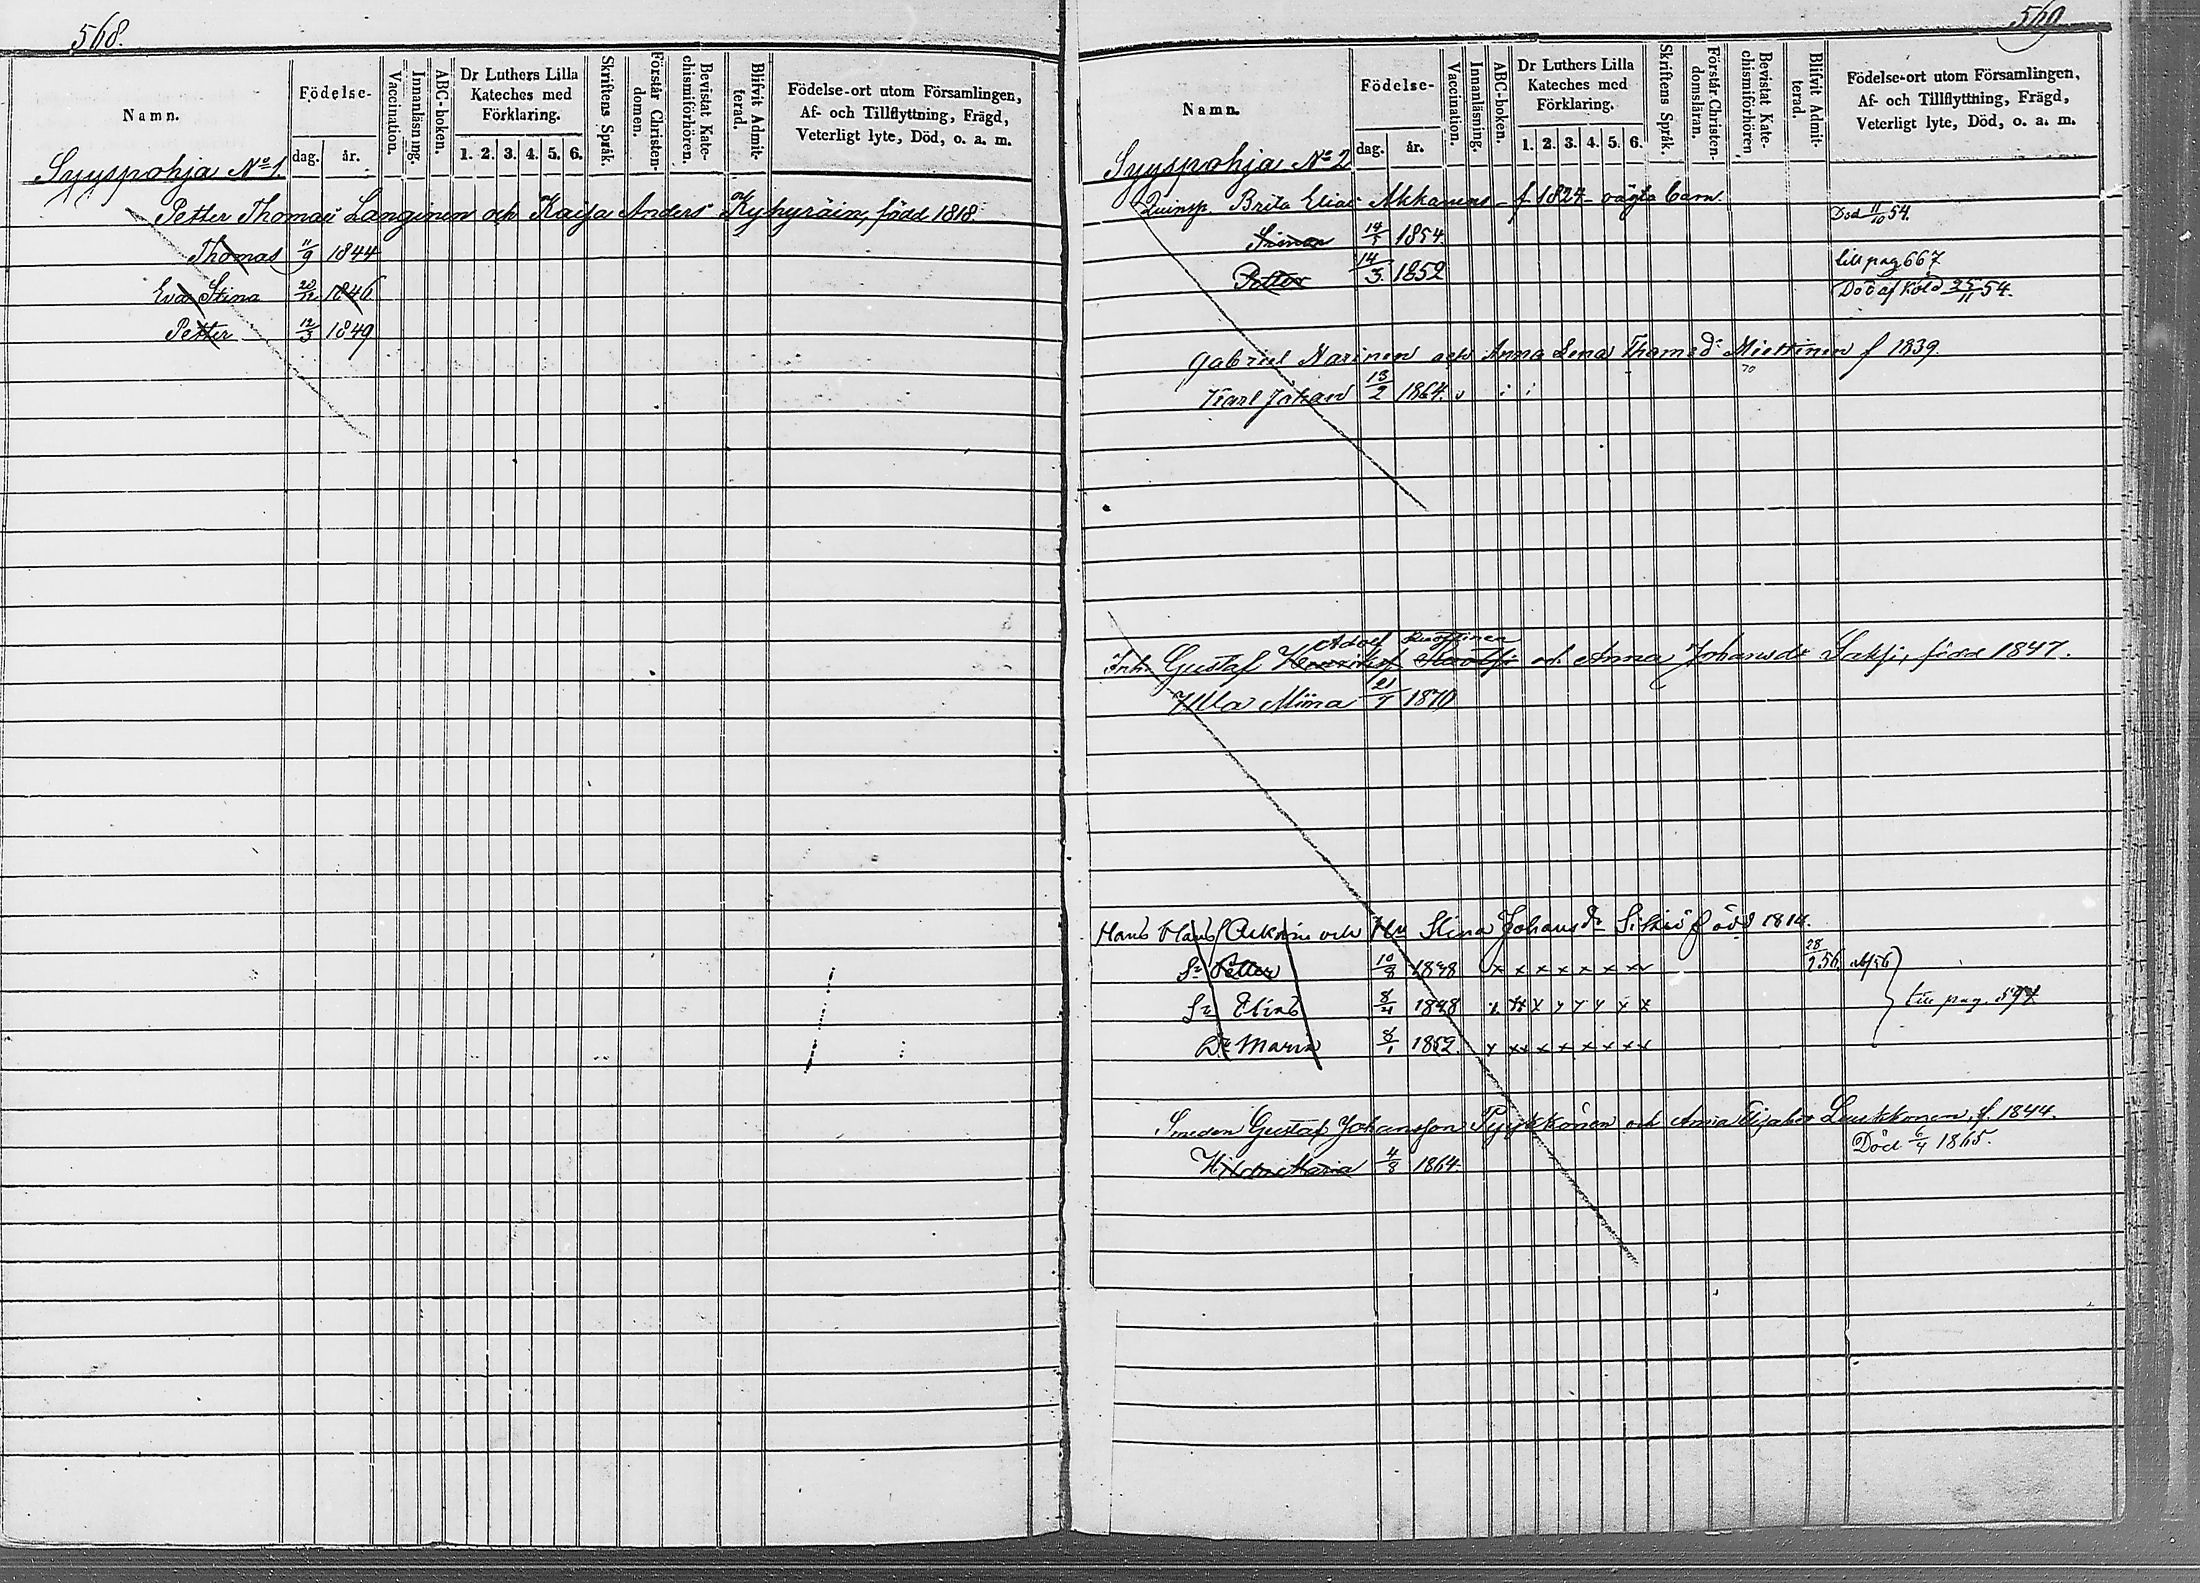 568.
Namn.
Födelse-
dag. år.
Vaccination.
Innanläsning.
ABC-boken.
Dr Luthers Lilla Kateches med Förklaring.
1. 2. 3. 4. 5. 6.
Skriftens Språk.
Förstår Christendomen.
Bevistat Katechismiförhören.
Blifvit Admitterad.
Födelse-ort utom Församlingen, Af- och Tillflyttning, Frägd, Veterligt lyte, Död, o. a. m.
Syyspohja No 1.
Petter Thomas Langinen och Kaisa Anders Kyhyräin, född 1818.
Thomas 11/9 1844
Eva Stina 20/12 1846
Petter 12/3 1849
569
Namn.
Födelse-
dag. år.
Vaccination.
Innanläsning.
ABC-boken.
Dr Luthers Lilla Kateches med Förklaring.
1. 2. 3. 4. 5. 6.
Skriftens Språk.
Förstår Christendomsläran.
Bevistat Katechismiförhören.
Blifvit Admitterad.
Födelse-ort utom Församlingen, Af- och Tillflyttning, Frägd, Veterligt lyte, Död, o. a. m.
Syyspohja No 2
Qvinsp. Brita Elias Akkanens f 1824 oägta barn.
Simon 14/5 1854 Död 11/10 54.
Petter 14/3 1852 till pag 667
Död af Kold 25/11 54.
Gabriel Narinen och Anna Lena Thomasd: Miettinen f 1839.
Karl Johan 13/2 1864.
Adolf
Inh. Gustaf och Anna Johansdr Saksi, född 1847.
Ulla Miina 21/9 1870
Hans Hans och Hu Stina Johansdr född 1814.
Sn Petter 10/8 1848 x x x x x x x x 28/9 56.
Sn Elias 8/4 1848 till pag. 597
Dr Maria 8/1 1852.
Smeden Gustaf Johansson Pyykkönen och Anna Elisabet Luukkonen, f. 1844.
Hilda Maria 4/8 1864. Död 6/4 1865.